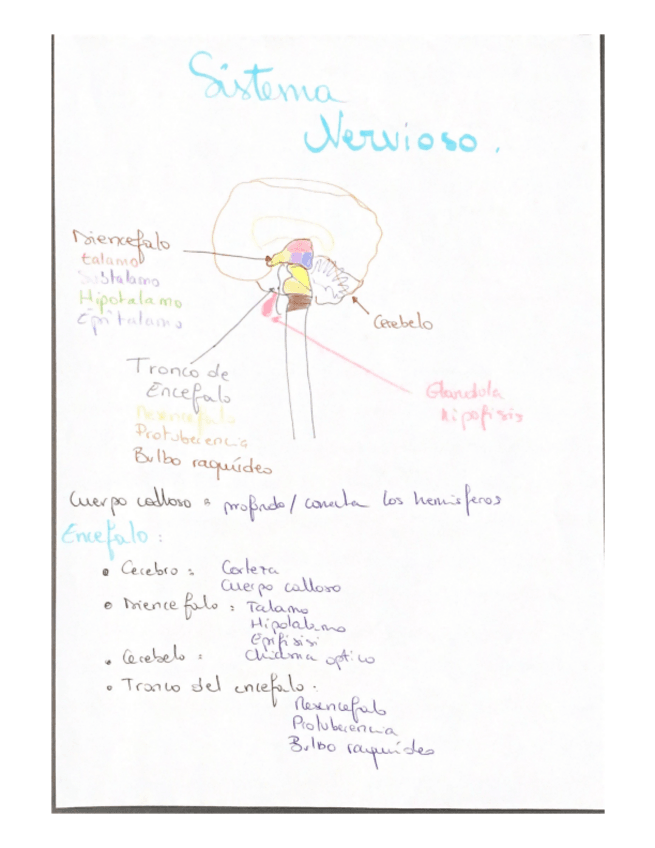 Sistema
Nervioso.
Diencefalo
talamo
Subtalamo
Hipotalamo
Epitalamo
Cerebelo
Tronco de
Encefalo
Mesencefalo
Protuberencia
Bulbo raquídeo
Glandula
hipofisis
Cuerpo calloso : profundo / conecta los hemisferos
Encefalo :
• Cerebro : Corteza
Cuerpo calloso
• Diencefalo : Talamo
Hipotalamo
Epifisis
• Cerebelo : Chiasma optico
• Tronco del encefalo :
Mesencefalo
Protuberencia
Bulbo raquídeo